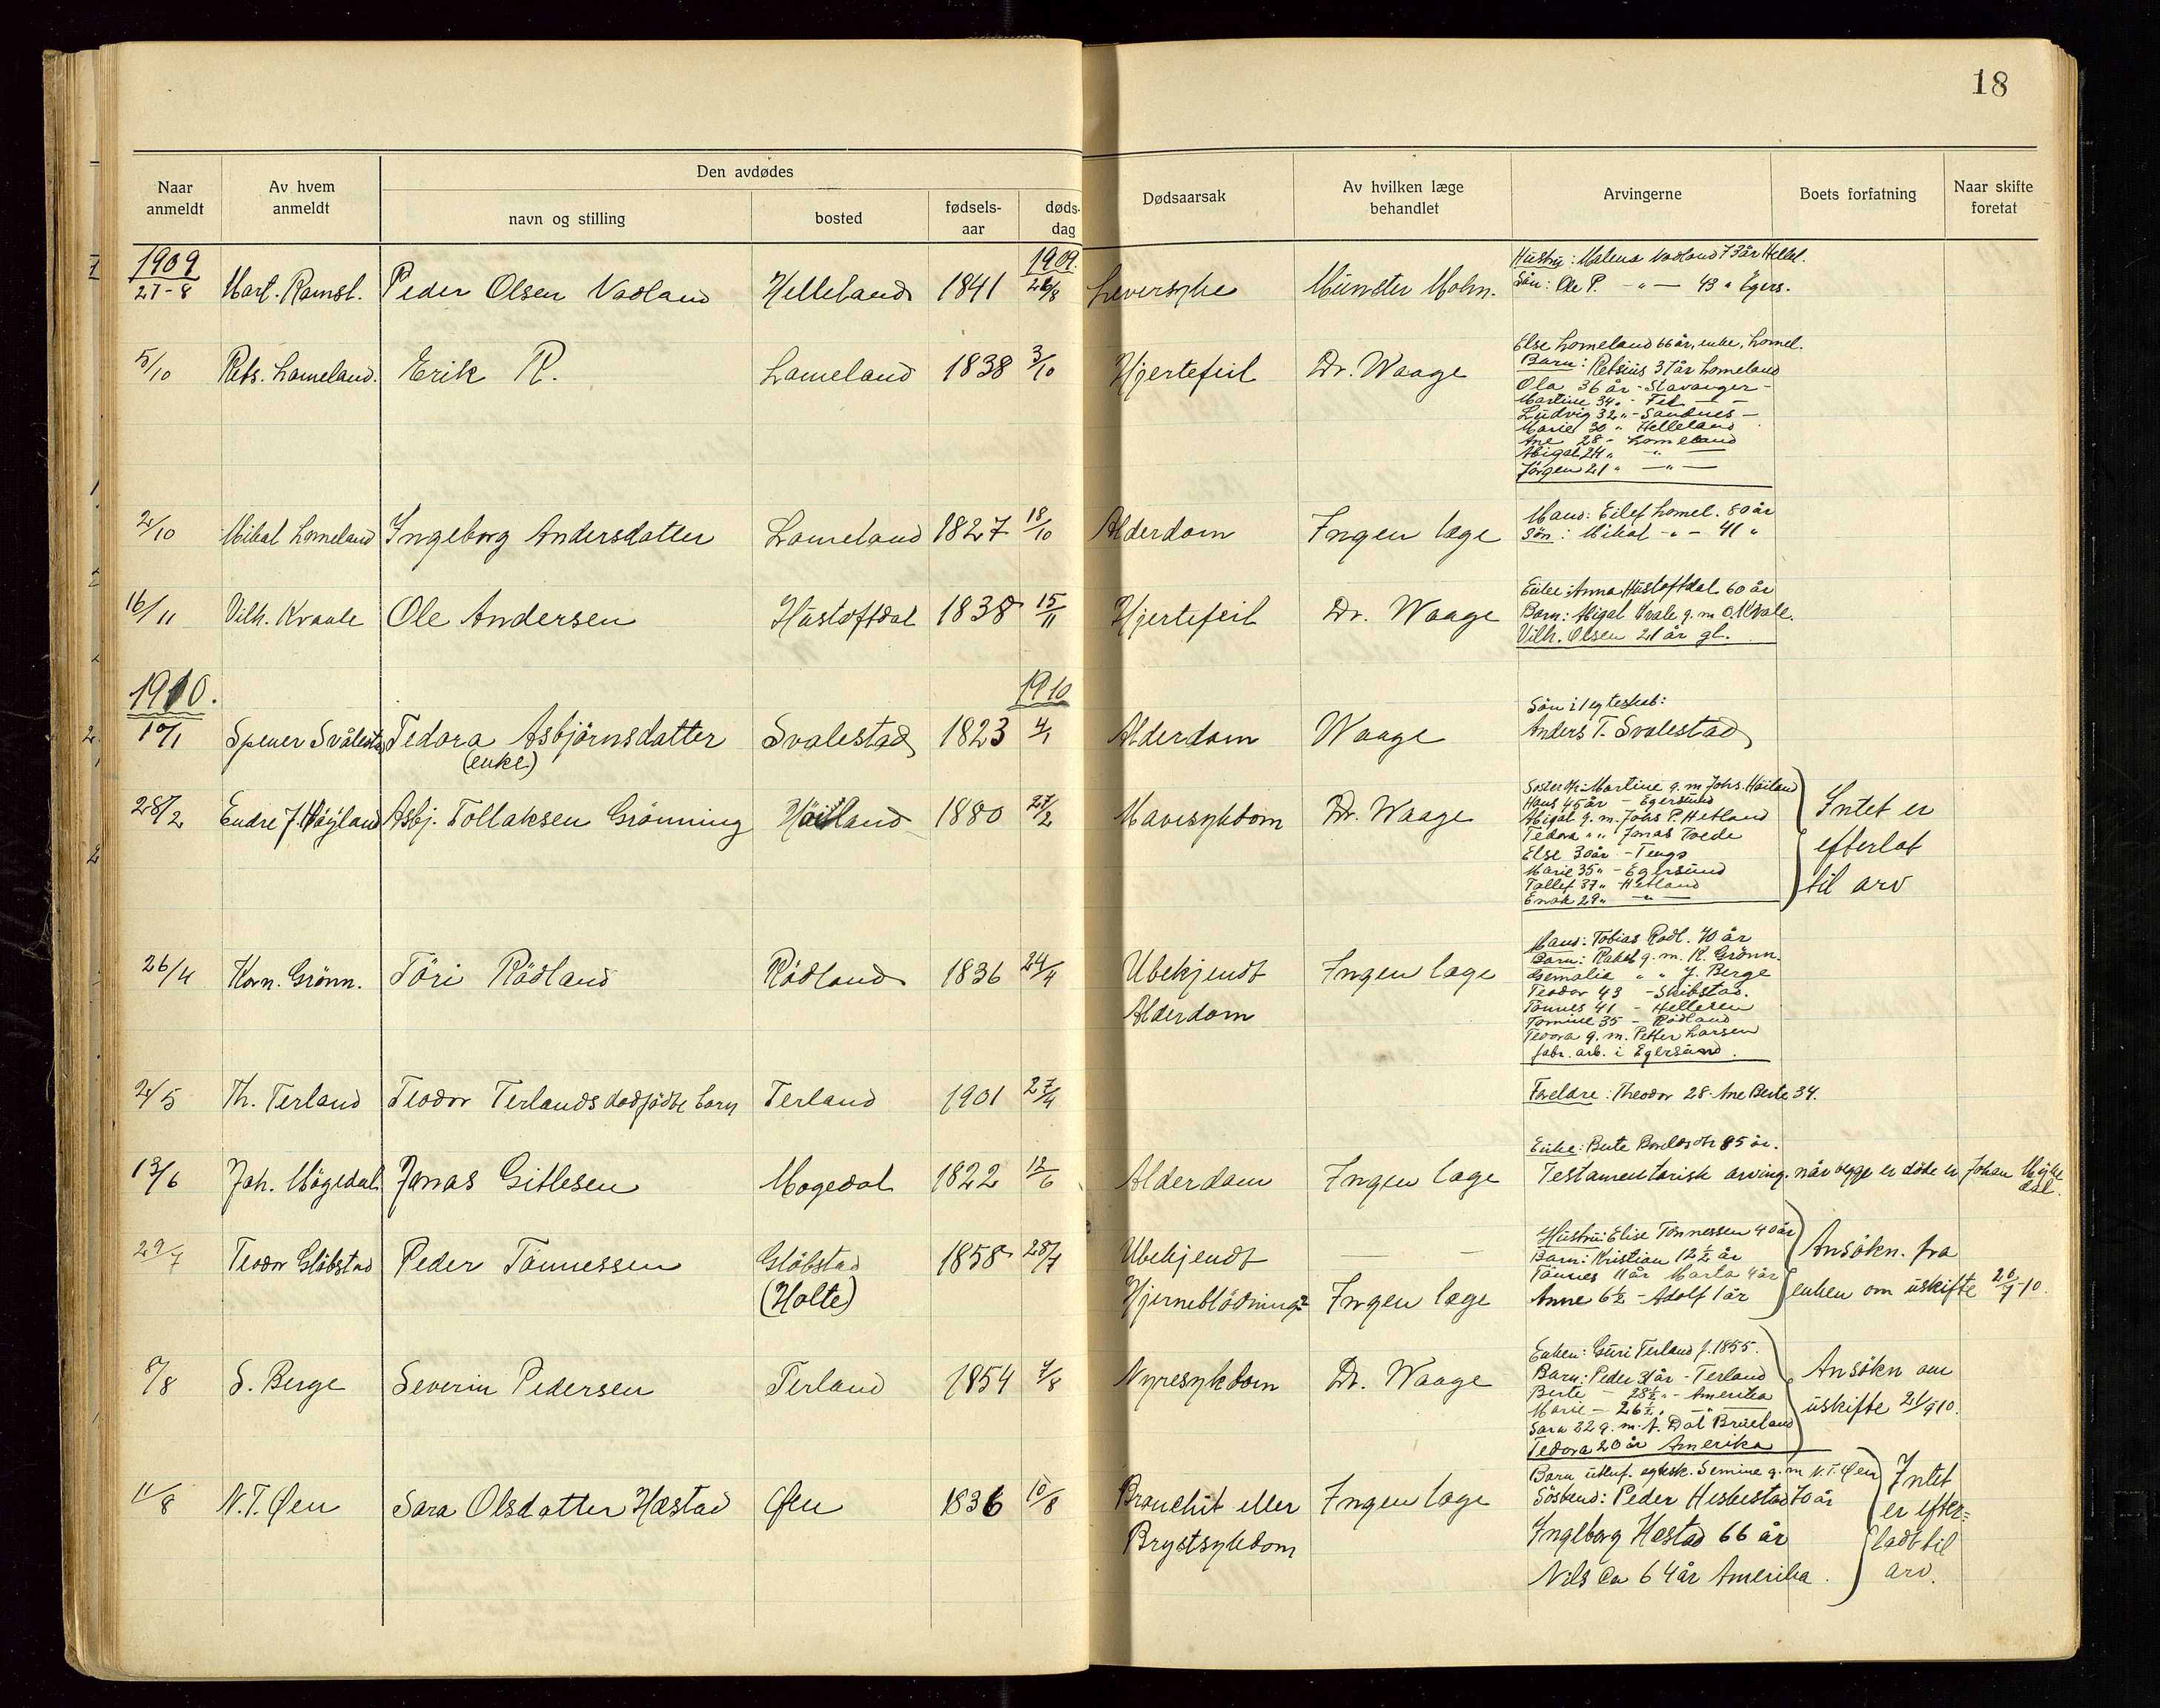 18
Naar anmeldt
Av hvem anmeldt
Den avdødes
navn og stilling
bosted
fødsels-aar
døds-dag
Dødsaarsak
Av hvilken læge behandlet
Arvingerne
Boets forfatning
Naar skifte foretat
1909 1909.
27-8 Mart. Ramsl. Peder Olsen Vadland Helleland 1841 26/8 Leversyke Münster Mohn.
Hustru: Malena Vadland 73 år Hellel.
Sön: Ole P. -"- 43 " Egers.
5/10 Rets. Lomeland. Erik R. Lomeland 1838 3/10 Hjertefeil Dr. Waage
Else Lomeland 66 år, enke, Lomel.
Barn: Retsius 37 år Lomeland
Ola 36 år - Stavanger -
Martine 34 " -
Ludvig 32 " - Sandnes -
Marie 30 " Helleland
Ane 28 - Lomeland
Abigal 24 " -"-
Jörgen 21 " -"-
2/10 Mikal Lomeland Ingeborg Andersdatter Lomeland 1827 18/10 Alderdom Ingen læge
Mand: Eilef Lomel. 80 år
Sön: Mikal -"- 41 "
16/11 Vilh. Kvaale Ole Andersen Hustoftdal 1838 15/11 Hjertefeil Dr. Waage
Enke: Anna Hustoftdal 60 år
Barn: Abigal Kvale g. m O. Kvale.
Vilh. Olsen 21 år gl.
1910. 1910
10/1 Spener Svålestad Tedora Asbjörnsdatter Svalestad 1823 4/1 Alderdom Waage
(enke)
Sön i 1 egteskab:
Anders T. Svalestad
28/2 Endre J. Höyland Asbj. Tollaksen Grönning Höiland 1880 27/2 Mavesykdom Dr. Waage
Martine g. m Johs. Höiland
Hans 45 år - Egersund
Abigal g. m. Johs P. Hetland
Tedora " " Jonas Tvede
Else 30 år - Tengs
Marie 35 " - Egersund
Tallef 37 " Hetland
Enok 29 " -"-
Intet er
efterlat
til arv
26/4 Korn. Grönn. Töri Rödland Rödland 1836 24/4 Ubekjendt Ingen læge
Alderdom
Mand: Tobias Rödl. 70 år
Barn: Rakel g. m. K. Grönn.
" " J. Berge
Teodor 43 - Skibstad.
Tönnes 41 - Helleren
Tomine 35 - Rödland
Teodora g. m. Petter Larsen
fabr. arb. i Egersund.
2/5 Th. Terland Teodor Terlands dødfödte barn Terland 1901 27/4
Foreldre: Theodor 28. Ane Berte 34.
13/6 Joh. Mögedal Jonas Gitlesen Mogedal 1822 12/6 Alderdom Ingen læge
Enke: Berte 85 år.
Testamentarisk arving. når begge er döde er Johan
29/7 Teodor Glöbstad Peder Tönnessen Glöbstad 1858 28/7 Ubekjendt — —
(Holte) Hjerneblödning? Ingen læge
Hustru: Elise Tönnessen 40 år
Barn: Kristian 12½ år
Tönnes 11 år Marta 4 år
Anne 6½ - Adolf 1 år
Ansökn. fra
enken om uskifte 26/9-10.
8/8 S. Berge Severin Pedersen Terland 1854 7/8 Nyresykdom Dr. Waage
Enken: Guri Terland f. 1855.
Barn: Peder 31 år - Terland
Berte - 28½ " - Amerika
Marie - 26½ " -"-
Sara 22 g. m. A. Dal Brüeland
Tedora 20 år Amerika
Ansökn om
uskifte 21/9 10.
11/8 N. T. Øen Sara Olsdatter Hæstad Øen 1836 10/8 Bronchit eller Ingen læge
Brystsykdom
Barn utenf. egtesk. Semine g. m N. T. Øen
Söskend: Peder Heskestad 70 år
Ingeborg Hæstad 66 år
Nils Ca 64 år Amerika.
Intet
er efter=
ladt til
arv.